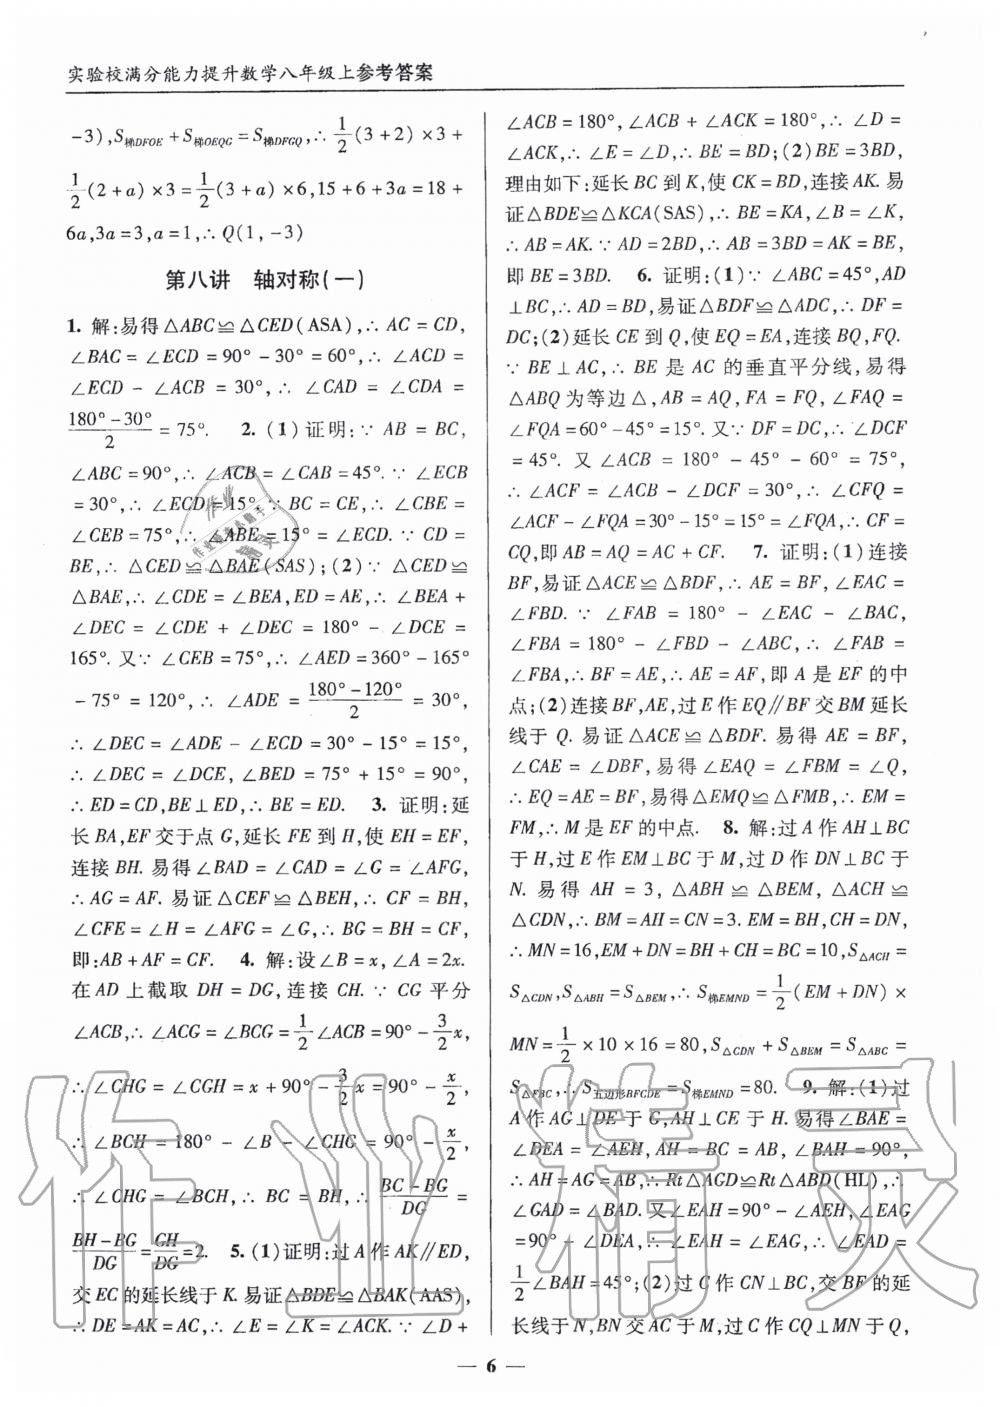 实验校满分能力提升数学八年级上参考答案
-3),S梯DFOE + S梯OEQG = S梯DFGQ,∴ 1/2 (3+2) ×3 +
1/2 (2+a) ×3 = 1/2 (3+a) ×6,15+6+3a=18+
6a,3a=3,a=1,∴ Q(1,-3)
第八讲 轴对称(一)
1. 解:易得△ABC≌△CED(ASA),∴ AC = CD,
∠BAC = ∠ECD = 90° - 30° = 60°,∴ ∠ACD =
∠ECD - ∠ACB = 30°,∴ ∠CAD = ∠CDA =
(180°-30°)/2 = 75°. 2. (1)证明:∵ AB = BC,
∠ABC = 90°,∴ ∠ACB = ∠CAB = 45°. ∵ ∠ECB
= 30°,∴ ∠ECD = 15°. ∵ BC = CE,∴ ∠CBE =
∠CEB = 75°,∴ ∠ABE = 15° = ∠ECD. ∵ CD =
BE,∴ △CED≌△BAE(SAS);(2)∵ △CED≌
△BAE,∴ ∠CDE = ∠BEA,ED = AE,∴ ∠BEA +
∠DEC = ∠CDE + ∠DEC = 180° - ∠DCE =
165°. 又∵ ∠CEB = 75°,∴ ∠AED = 360° - 165°
- 75° = 120°,∴ ∠ADE = (180°-120°)/2 = 30°,
∴ ∠DEC = ∠ADE - ∠ECD = 30° - 15° = 15°,
∴ ∠DEC = ∠DCE,∠BED = 75° + 15° = 90°,
∴ ED = CD,BE⊥ED,∴ BE = ED. 3. 证明:延
长BA,EF交于点G,延长FE到H,使EH = EF,
连接BH. 易得∠BAD = ∠CAD = ∠G = ∠AFG,
∴ AG = AF. 易证△CEF≌△BEH,∴ CF = BH,
∠CFE = ∠H = ∠AFG = ∠G,∴ BG = BH = CF,
即:AB + AF = CF. 4. 解:设∠B = x,∠A = 2x.
在AD上截取DH = DG,连接CH. ∵ CG平分
∠ACB,∴ ∠ACG = ∠BCG = 1/2 ∠ACB = 90° - 3/2 x,
∴ ∠CHG = ∠CGH = x + 90° - 3/2 x = 90° - x/2,
∴ ∠BCH = 180° - ∠B - ∠CHG = 90° - x/2,
∴ ∠CHG = ∠BCH,∴ BC = BH,∴ (BC-BG)/DG =
(BH-BG)/DG = GH/DG = 2. 5. (1)证明:过A作AK∥ED,
交EC的延长线于K. 易证△BDE≌△BAK(AAS),
∴ DE = AK = AC,∴ ∠E = ∠K = ∠ACK. ∵ ∠D +
∠ACB = 180°,∠ACB + ∠ACK = 180°,∴ ∠D =
∠ACK,∴ ∠E = ∠D,∴ BE = BD;(2)BE = 3BD,
理由如下:延长BC到K,使CK = BD,连接AK. 易
证△BDE≌△KCA(SAS),∴ BE = KA,∠B = ∠K,
∴ AB = AK. ∵ AD = 2BD,∴ AB = 3BD = AK = BE,
即BE = 3BD. 6. 证明:(1)∵ ∠ABC = 45°,AD
⊥BC,∴ AD = BD,易证△BDF≌△ADC,∴ DF =
DC;(2)延长CE到Q,使EQ = EA,连接BQ,FQ.
∵ BE⊥AC,∴ BE是AC的垂直平分线,易得
△ABQ为等边△,AB = AQ,FA = FQ,∠FAQ =
∠FQA = 60° - 45° = 15°. 又∵ DF = DC,∴ ∠DCF
= 45°. 又∠ACB = 180° - 45° - 60° = 75°,
∴ ∠ACF = ∠ACB - ∠DCF = 30°,∴ ∠CFQ =
∠ACF - ∠FQA = 30° - 15° = 15°,∴ CF =
CQ,即AB = AQ = AC + CF. 7. 证明:(1)连接
BF,易证△ACE≌△BDF,∴ AE = BF,∠EAC =
∠FBD. ∵ ∠FAB = 180° - ∠EAC - ∠BAC,
∠FBA = 180° - ∠FBD - ∠ABC,∴ ∠FAB =
∠FBA,∴ BF = AE,∴ AE = AF,即A是EF的中
点;(2)连接BF,AE,过E作EQ∥BF交BM延长
线于Q. 易证△ACE≌△BDF. 易得AE = BF,
∠CAE = ∠DBF,易得∠EAQ = ∠FBM = ∠Q,
∴ EQ = AE = BF,易得△EMQ≌△FMB,∴ EM =
FM,∴ M是EF的中点. 8. 解:过A作AH⊥BC
于H,过E作EM⊥BC于M,过D作DN⊥BC于
N. 易得AH = 3,△ABH≌△BEM,△ACH≌
△CDN,∴ BM = AH = CN = 3. EM = BH,CH = DN,
∴ MN = 16,EM + DN = BH + CH = BC = 10,S△ACH =
S△CDN,S△ABH = S△BEM,∴ S梯EMND = 1/2 (EM + DN) ×
MN = 1/2 × 10 × 16 = 80,S△CDN + S△BEM = S△ABC =
S△FBC,∴ S五边形BFCDE = S梯EMND = 80. 9. 解:(1)过
A作AG⊥DE于G,AH⊥CE于H. 易得∠BAE =
∠DEA = ∠AEH,AH = BC = AB,∠BAH = 90°,
∴ AH = AG = AB,∴ Rt△AGD≌Rt△ABD(HL),∴
∠GAD = ∠BAD. 又∠EAH = 90° - ∠AEH,∠EAG
= 90° - ∠DEA,∴ ∠EAG = ∠EAH,∴ ∠EAD =
1/2 ∠BAH = 45°;(2)过C作CN⊥BC,交BF的延
长线于N,BN交AC于M,过C作CQ⊥MN于Q,
— 6 —
作业精灵